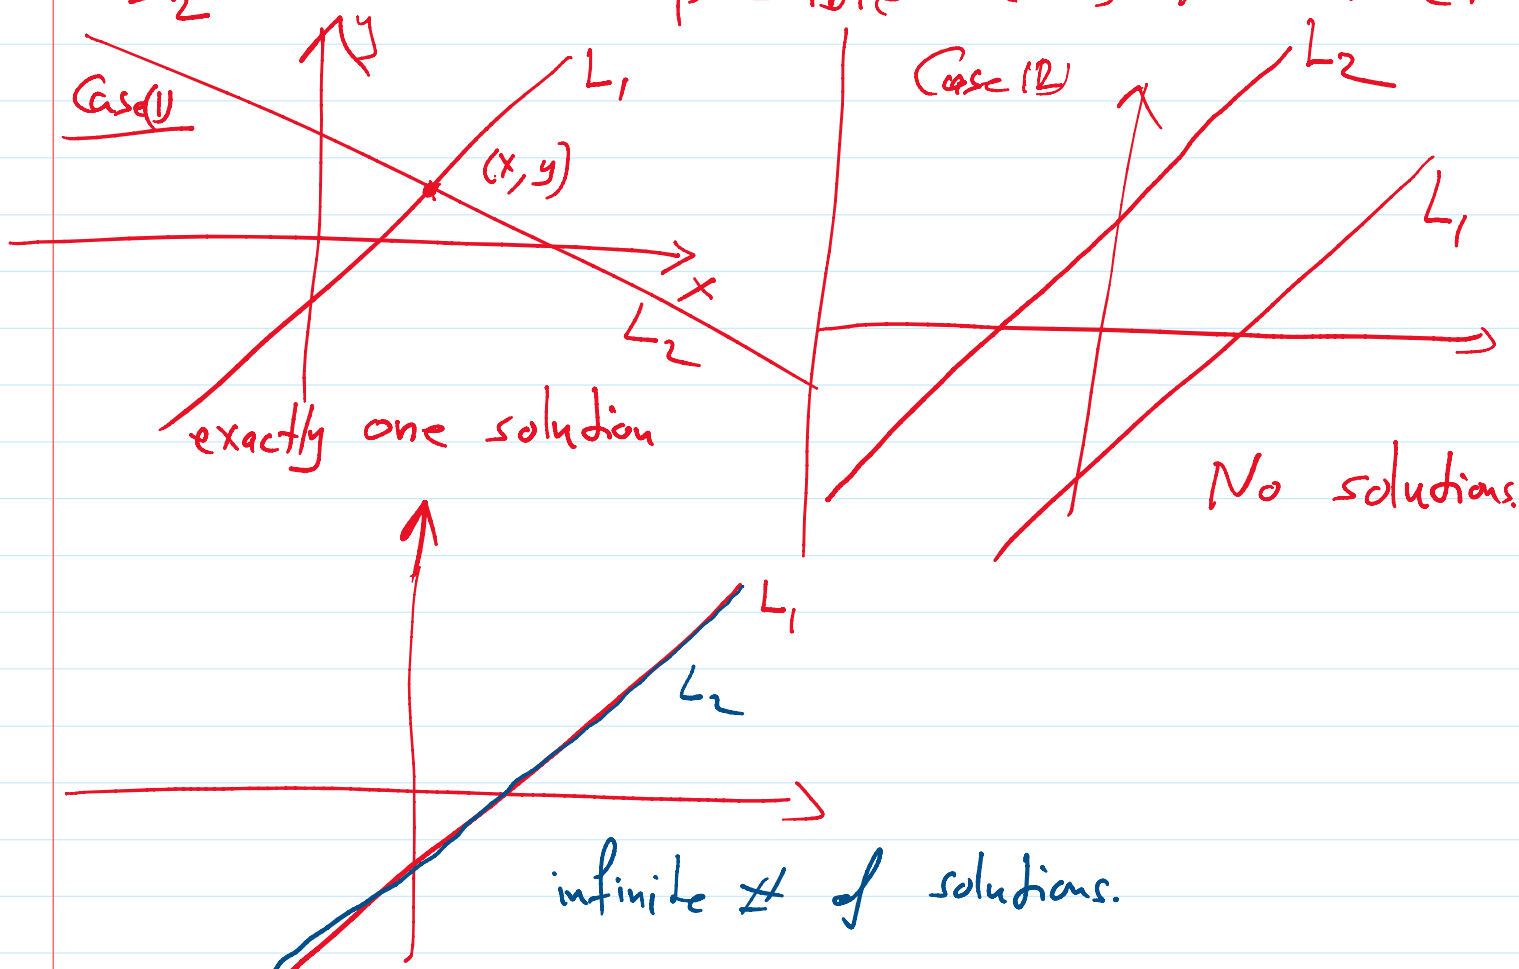 y
L₁
Case(1)
(x, y)
x
L₂
exactly one solution
Case (2)
L₂
L₁
No solutions.
L₁
L₂
infinite # of solutions.